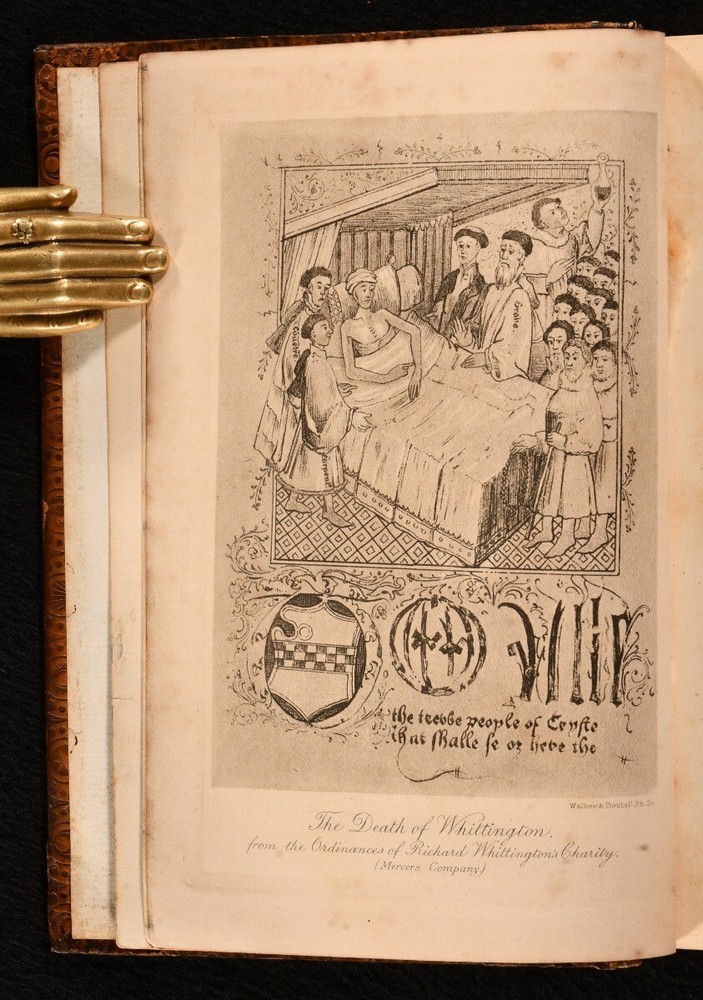 the trewe people of Cryste
that ſhalle ſe or here the
Walker & Boutall, Ph. Sc.
The Death of Whittington.
from the Ordinances of Richard Whittington's Charity.
(Mercers Company)